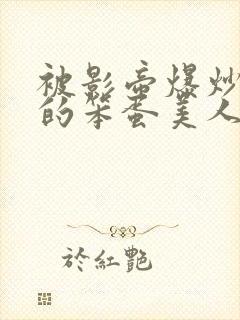 被影帝爆炒
的笨蛋美人
於紅艷